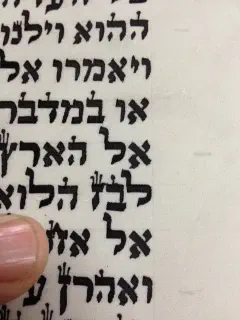 ההוא וילנו
ויאמרו אל
או במדבר
אל הארץ
לבז הלוא
אל אח
ואהרן ע